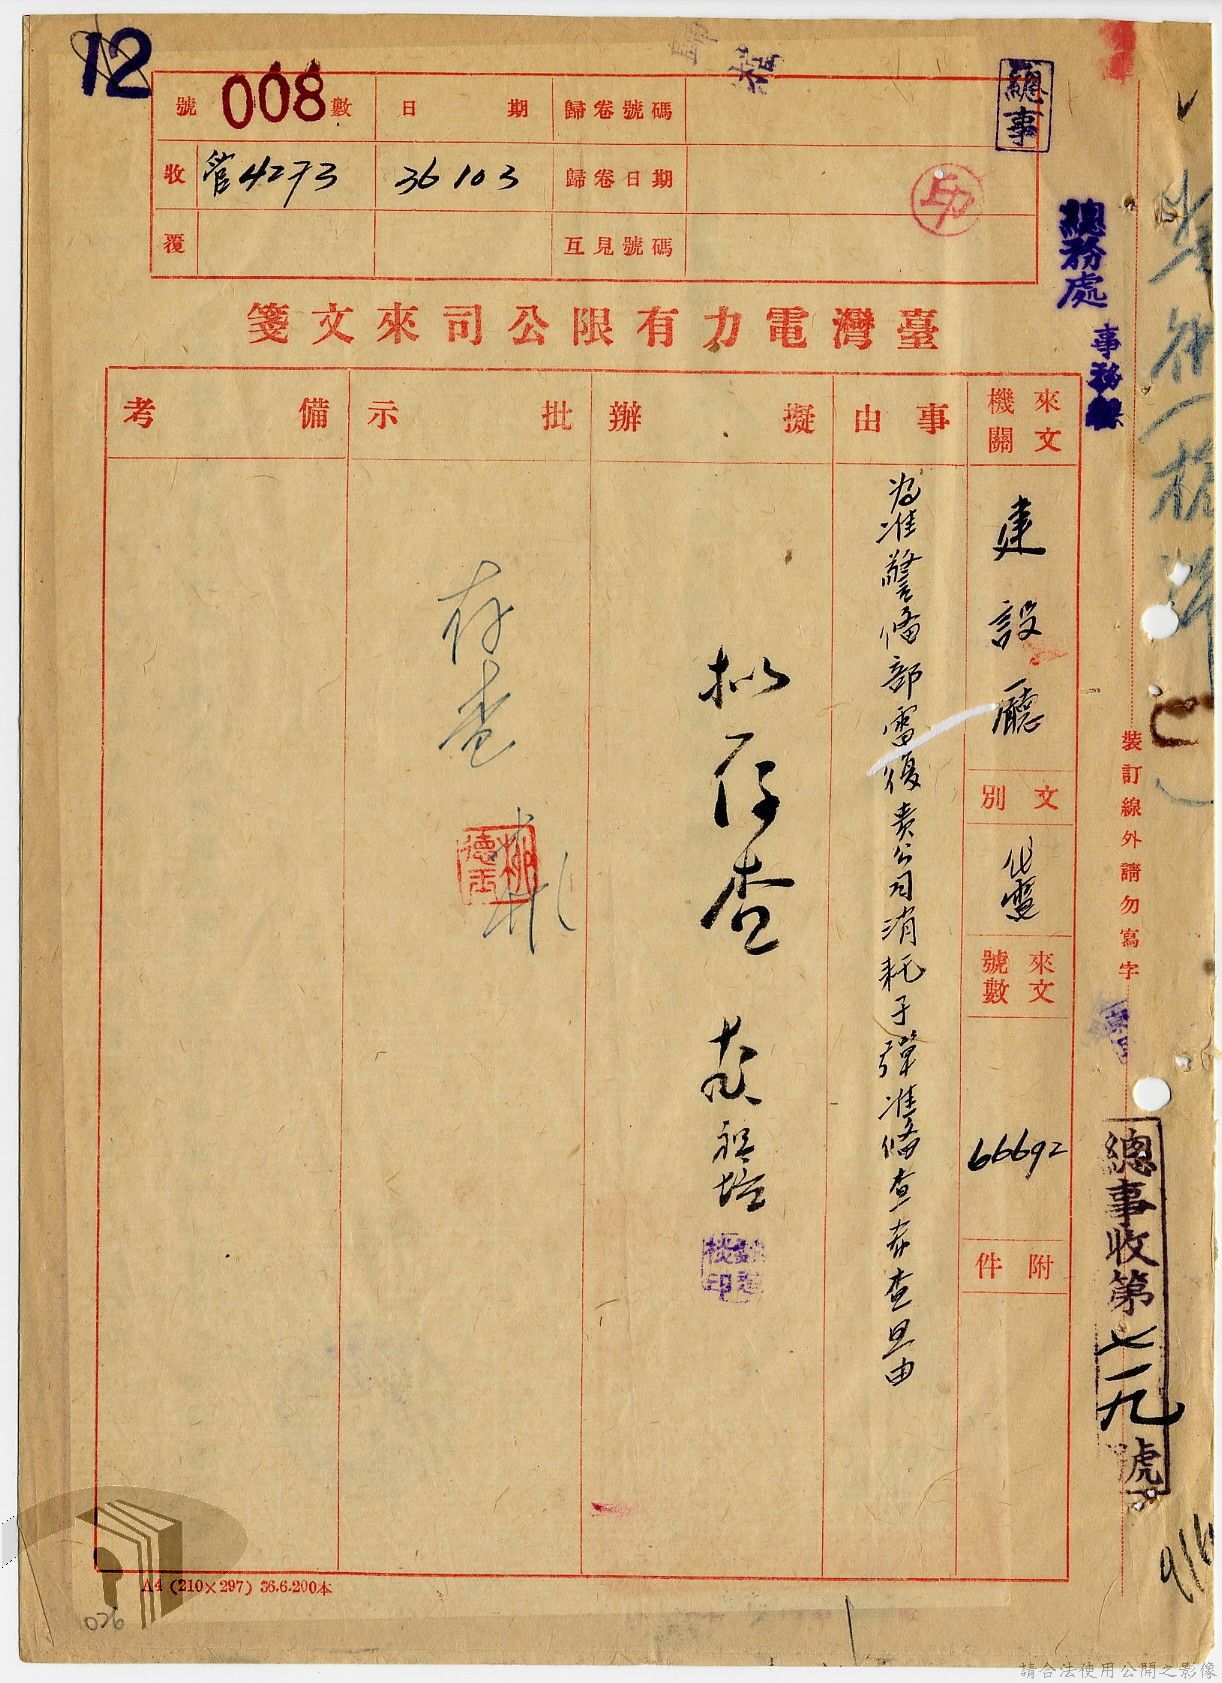 12
008
總事
號數
日期
歸卷號碼
收
管4273
36 10 3
歸卷日期
覆
互見號碼
臺灣電力有限公司來文箋
總務處
事務課
來文機關
建設廳
文別
代電
來文號數
66692
附件
事由
為准警備部電復貴公司消耗子彈准備查希查照由
擬辦
拟存查
批示
存查
備考
裝訂線外請勿寫字
總事收第七一九號
A4 (210×297) 36.6.200本
026
請合法使用公開之影像